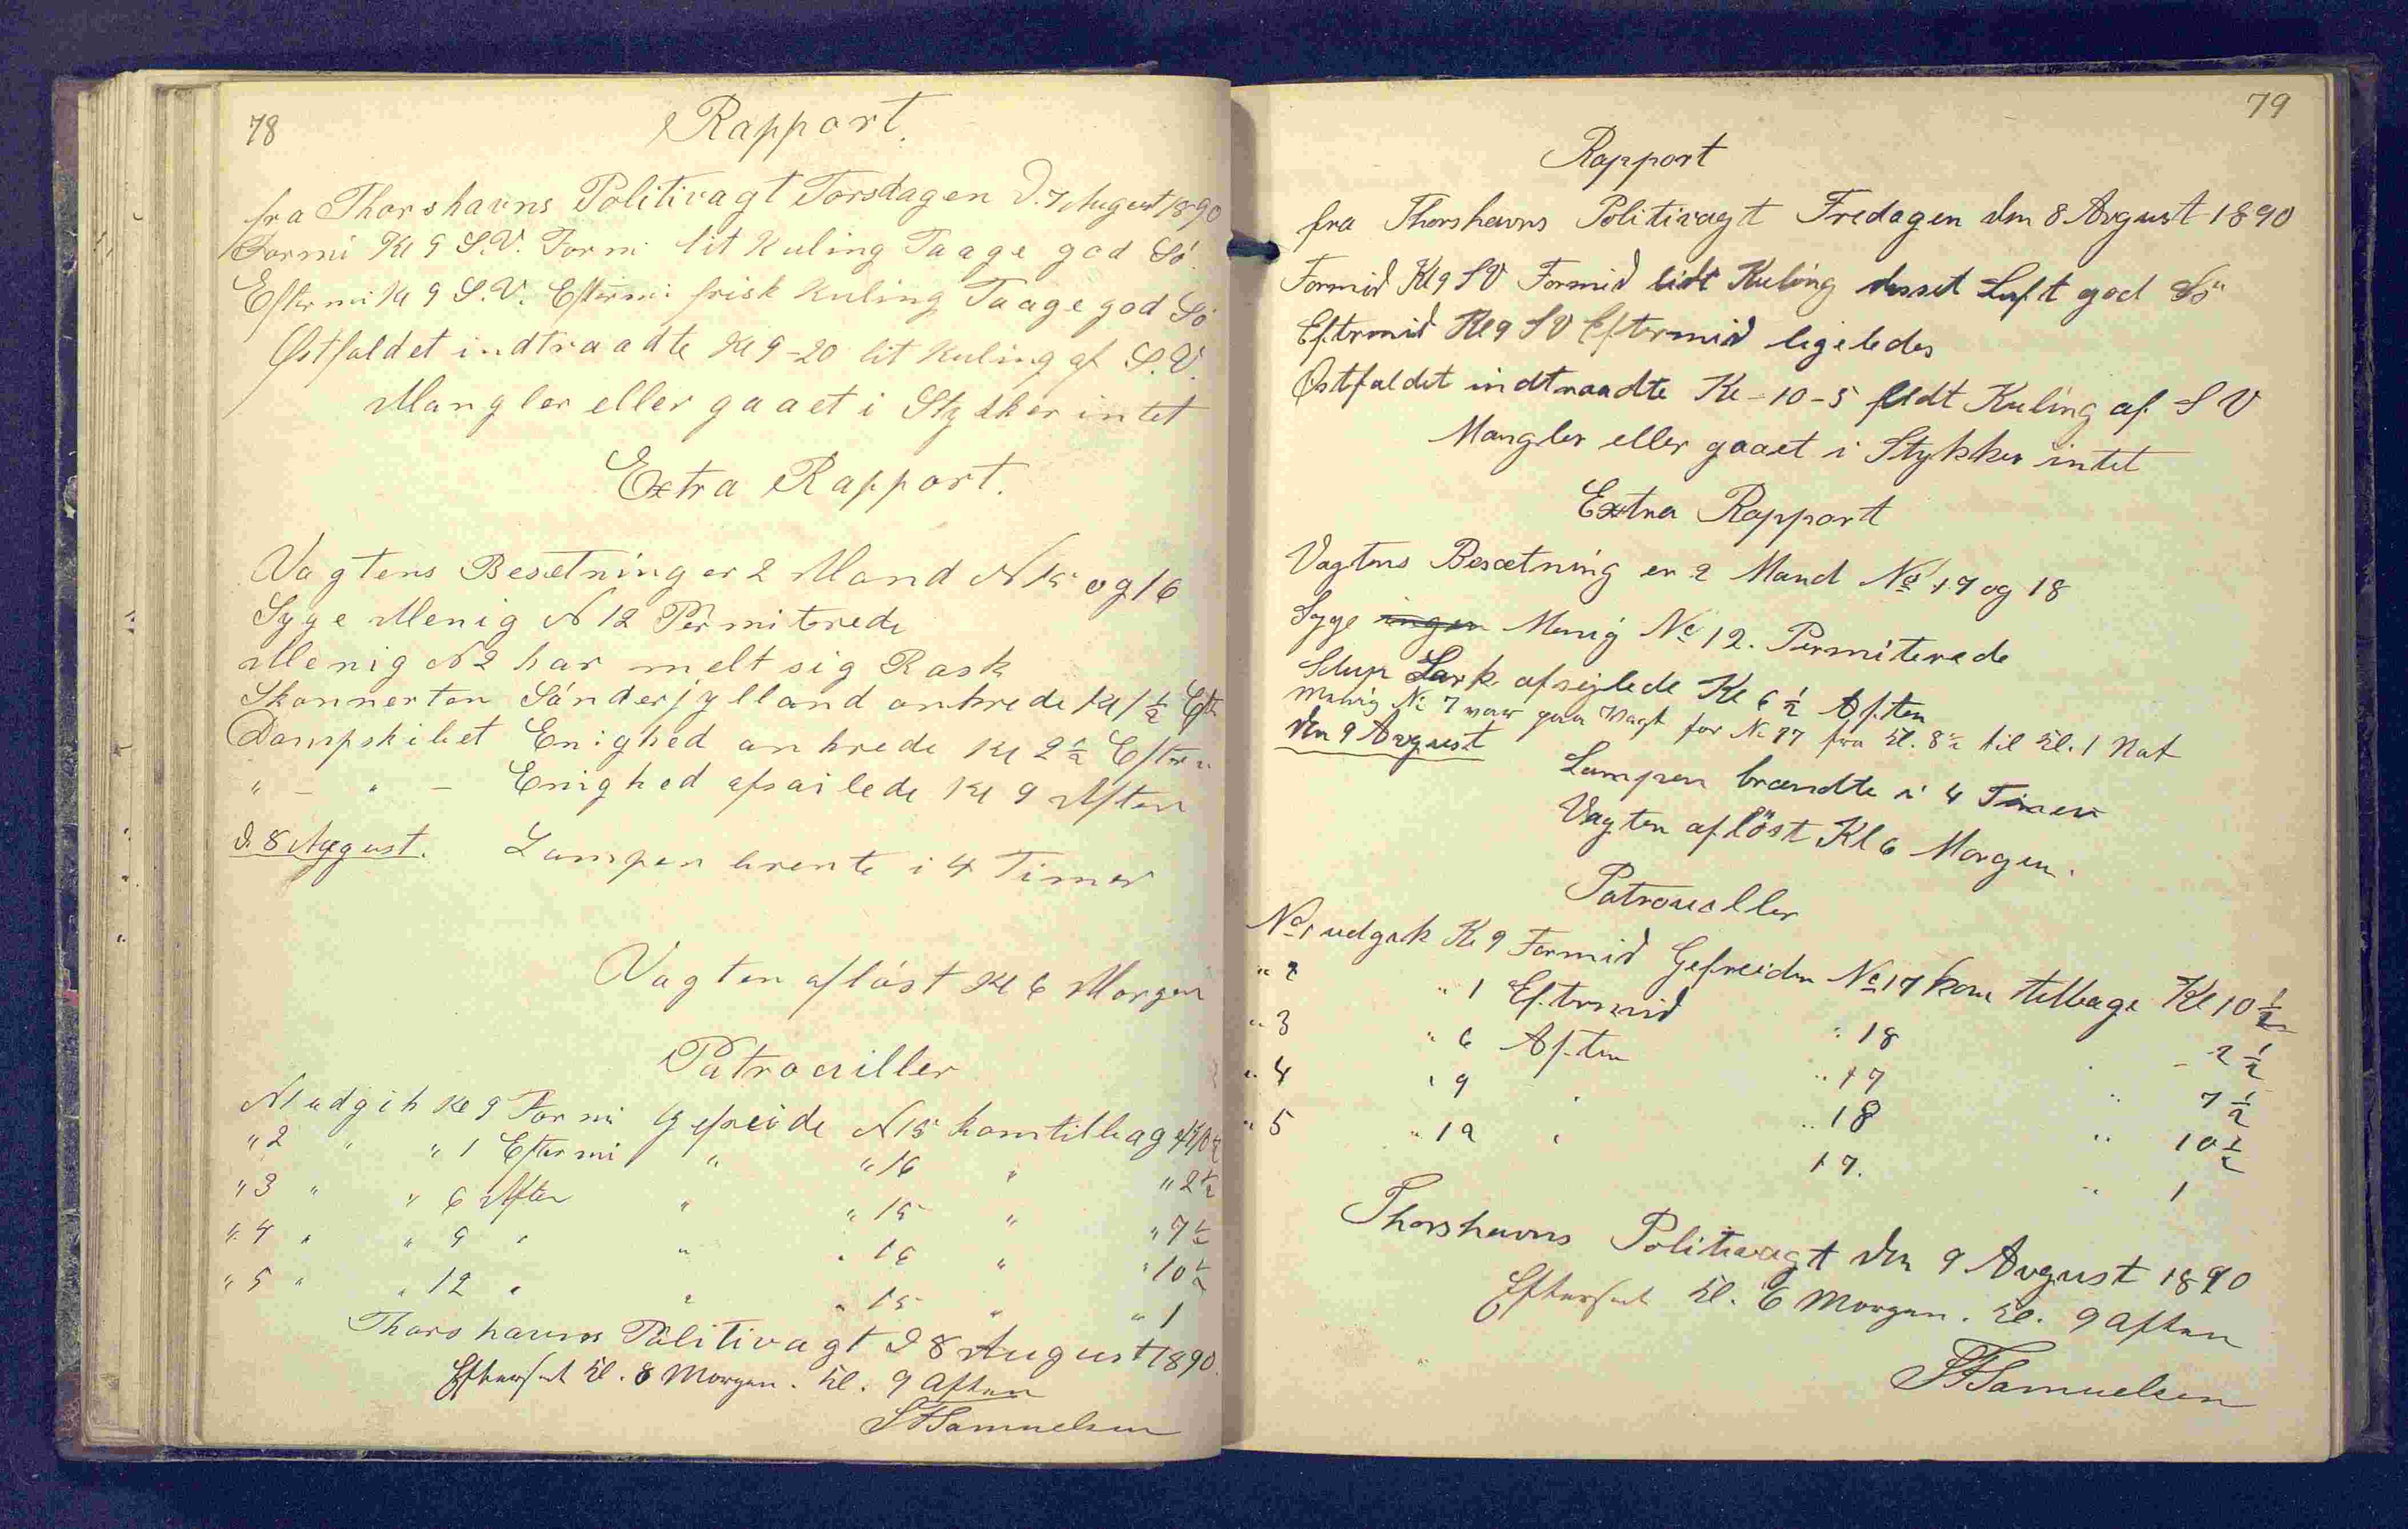 78
Rapport.
fra Thorshavns Politivagt Torsdagen D. 7 August 1890
Formi Kl 9 S.V. Formi lit Kuling Taage god Sö
Eftermi Kl 9 S.V. Eftermi frisk Kuling Taage god Sö
Østfaldet indtraadte Kl 9-20 lit Kuling af S.V.
Mangler eller gaaet i Stykker intet
Extra Rapport.
Vagtens Besætning er 2 Mand N 15 og 16
Syge Menig N 12 Permiterede
Menig N 2 har melt sig Rask
Skonnerten Sönderjylland ankrede Kl 1 1/2 Eft
Dampskibet Enighed ankrede Kl 2 1/2 Efterm
" - " - Enighed afsailede Kl 9 Aften
D. 8 August. Lampen brente i 4 Timer
Vagten aflöst Kl 6 Morgen
Patrouiller
N 1 udgik Kl 9 Formi Gefreide N 15 kom tilbage Kl 10 1/2
" 2 " " 1 Eftermi " " 16 " " 2 1/2
" 3 " " 6 Aften " " 15 " " 7 1/2
" 4 " " 9 " " " 16 " " 10 1/2
" 5 " " 12 " " " 15 " " 1
Thorshavns Politivagt D 8 August 1890.
Efterset Kl. 8 Morgen. Kl. 9 Aften
Samuelsen
79
Rapport
fra Thorshavns Politivagt Fredagen den 8 August 1890
Formid Kl 9 SV Formid lidt Kuling disset Luft god Sö
Eftermid Kl 9 SV Eftermid ligeledes
Østfaldet indtraadte Kl - 10 - 5 lidt Kuling af S V
Mangler eller gaaet i Stykker intet
Extra Rapport
Vagtens Besætning er 2 Mand No 17 og 18
Syge ingen Menig No 12. Permiterede
Slup Lark afsejlede Kl 6 1/2 Aften
Menig No 7 var paa Vagt for No 17 fra Kl. 8 1/2 til Kl. 1 Nat
den 9 August
Lampen brændte i 4 Timer
Vagten aflöst Kl 6 Morgen.
Patrouller
No 1 udgik Kl 9 Formid Gefreiden No 17 kom tilbage Kl 10 1/2
" 2 " 1 Eftermid " 18 " - 2 1/2
" 3 " 6 Aften " 17 " 7 1/2
" 4 " 9 " " 18 " 10 1/2
" 5 " 12 " 17. " 1
Thorshavns Politivagt den 9 August 1890
Efterset Kl. 6 Morgen. Kl. 9 Aften
Samuelsen